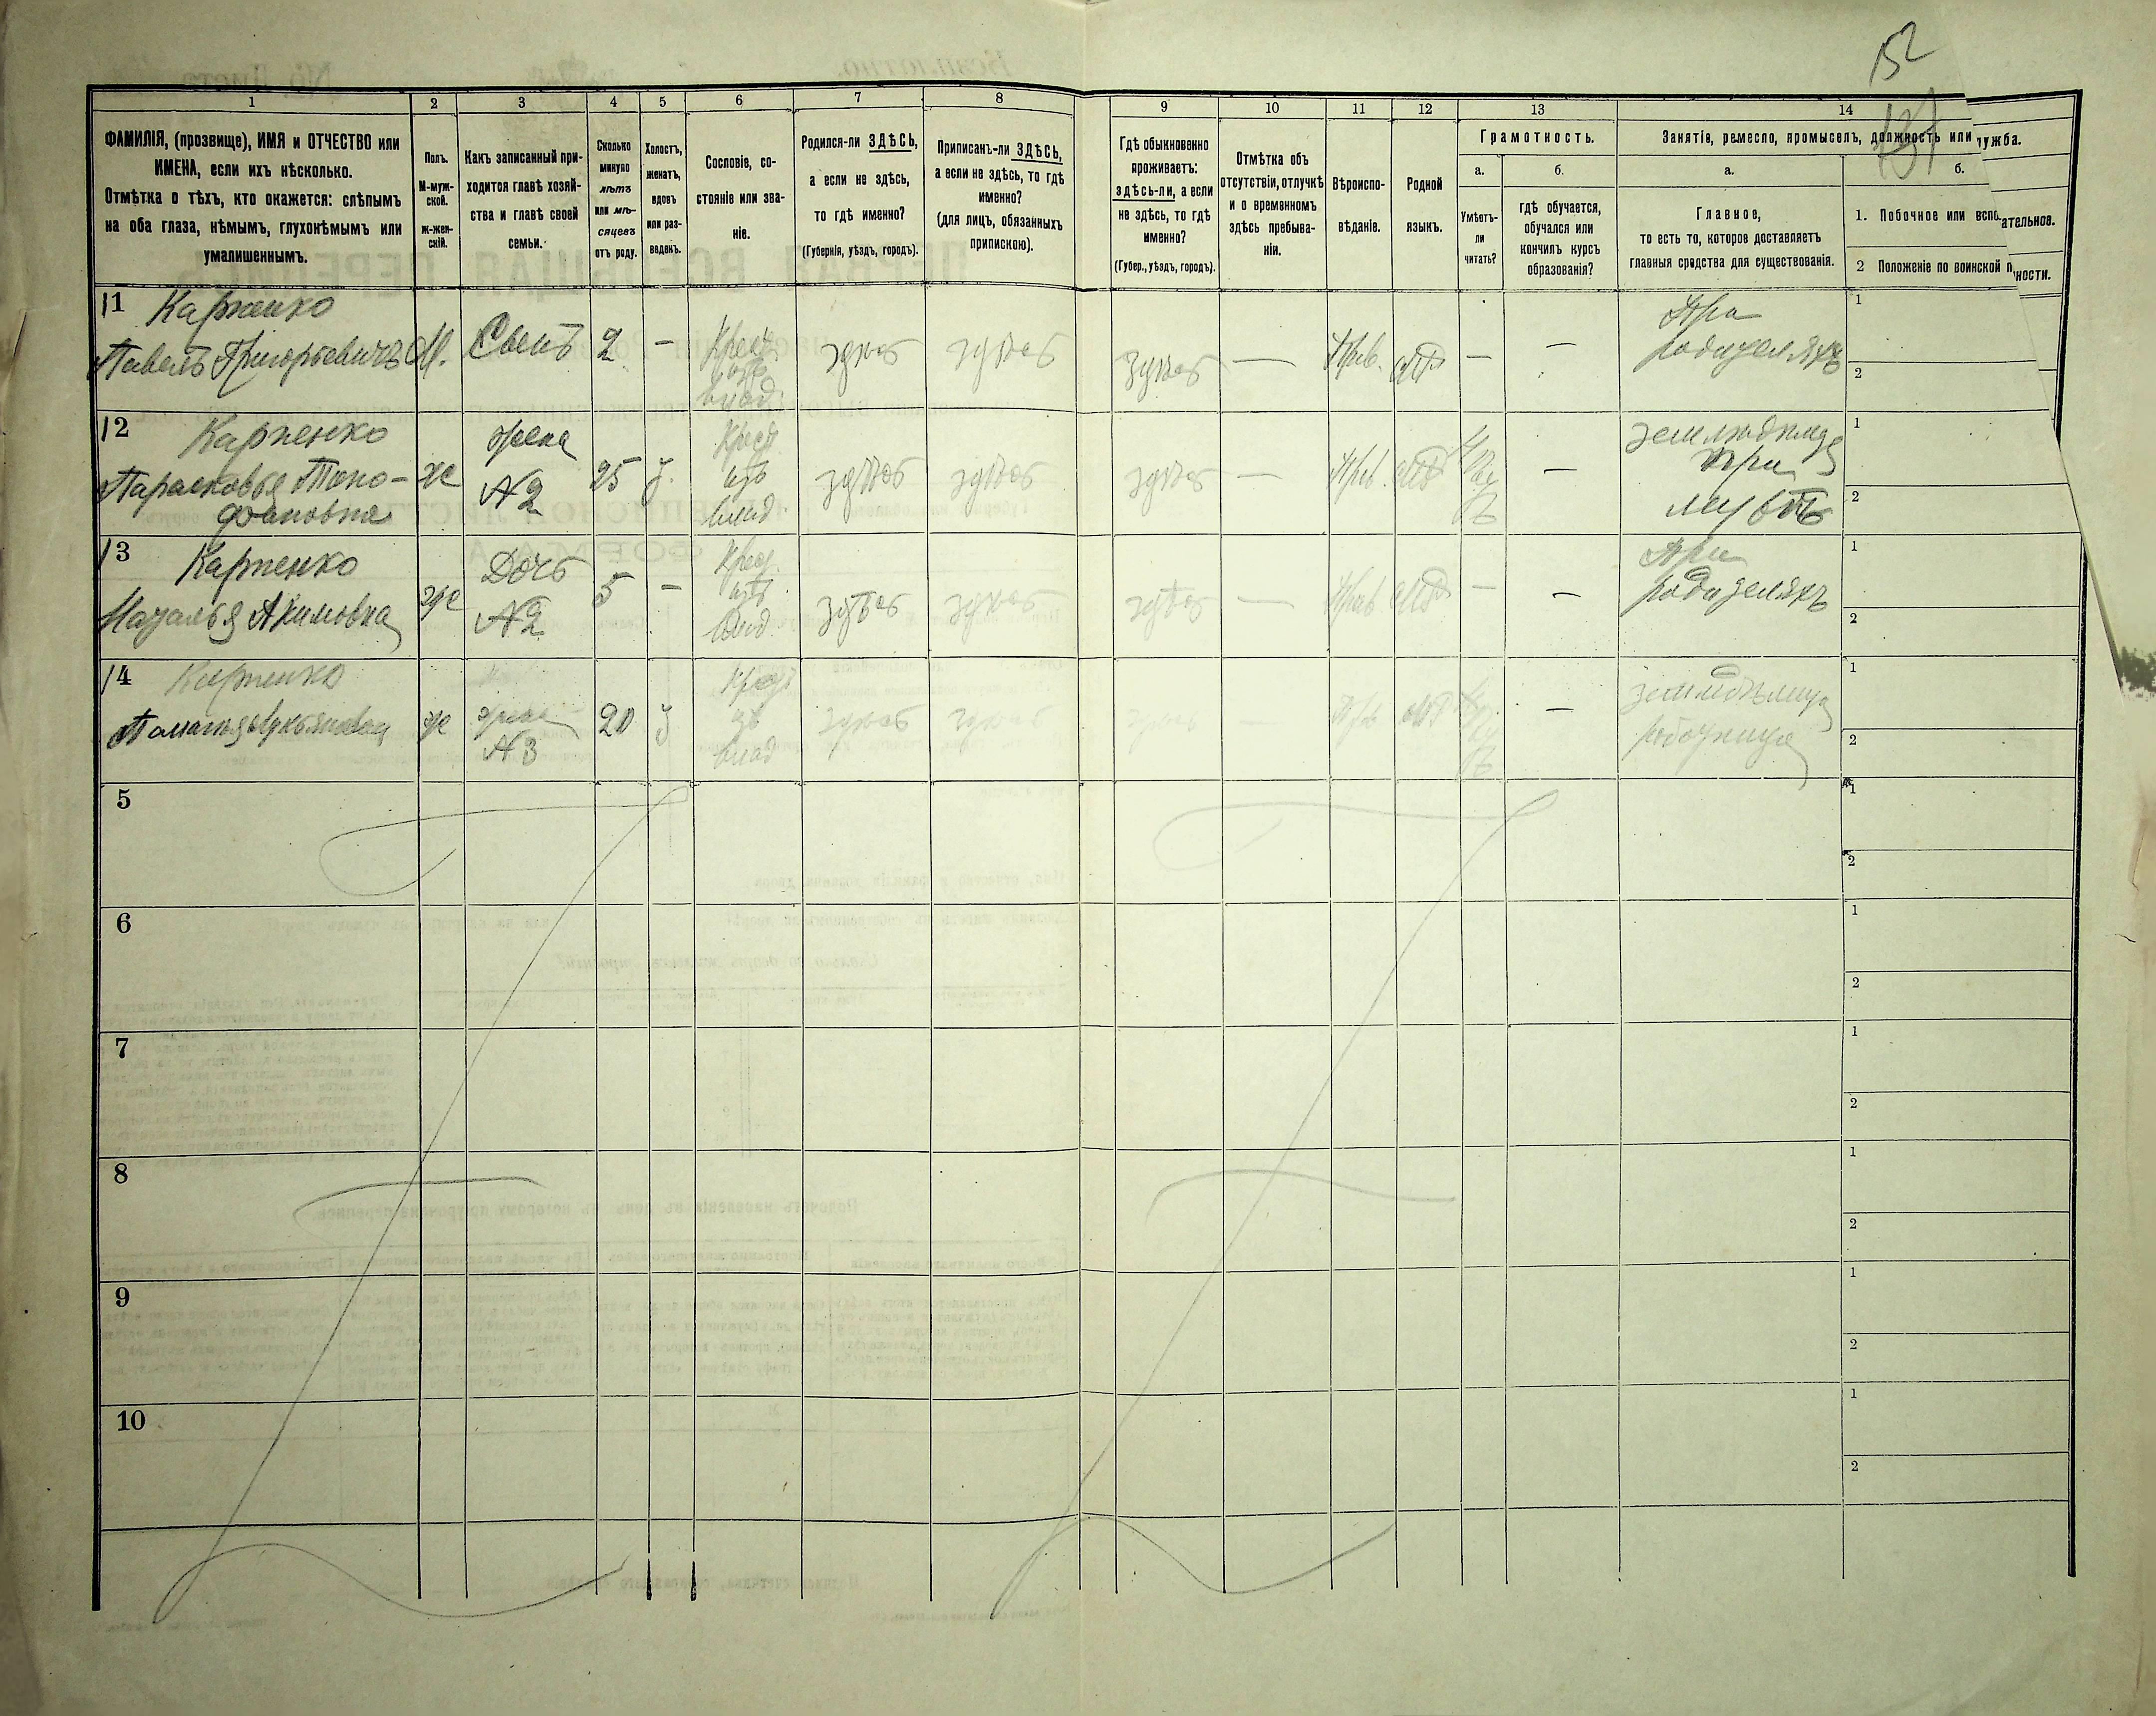 152
137
1 2 3 4 5 6 7 8 9 10 11 12 13 14
ФАМИЛІЯ, (прозвище), ИМЯ и ОТЧЕСТВО или
ИМЕНА, если ихъ нѣсколько.
Отмѣтка о тѣхъ, кто окажется: слѣпымъ
на оба глаза, нѣмымъ, глухонѣмымъ или
умалишеннымъ.
Полъ.
М-муж-
ской.
ж-жен-
скій.
Какъ записанный при-
ходится главѣ хозяй-
ства и главѣ своей
семьи.
Сколько
минуло
лѣтъ
или мѣ-
сяцевъ
отъ роду.
Холостъ,
женатъ,
вдовъ
или раз-
веденъ.
Сословіе, со-
стояніе или зва-
ніе.
Родился-ли ЗДѢСЬ,
а если не здѣсь,
то гдѣ именно?
(Губернія, уѣздъ, городъ).
Приписанъ-ли ЗДѢСЬ,
а если не здѣсь, то гдѣ
именно?
(для лицъ, обязанныхъ
припискою).
Гдѣ обыкновенно
проживаетъ:
здѣсь-ли, а если
не здѣсь, то гдѣ
именно?
(Губер., уѣздъ, городъ).
Отмѣтка объ
отсутствіи, отлучкѣ
и о временномъ
здѣсь пребыва-
ніи.
Вѣроиспо-
вѣданіе.
Родной
языкъ.
Грамотность.
а.
Умѣетъ-
ли
читать?
б.
гдѣ обучается,
обучался или
кончилъ курсъ
образованія?
Занятія, ремесло, промыселъ, должность или служба.
а.
Главное,
то есть то, которое доставляетъ
главныя средства для существованія.
б.
1. Побочное или вспо
ательное.
2 Положеніе по воинской п
ности.
11 Карпенко
Павелъ Григорьевичъ М. Сынъ 2 — Крест. изъ влад. здѣсь здѣсь здѣсь — Прав. — — При родителяхъ 1 2
12 Карпенко
Парасковья
ж жена №2 25 Крест изъ влад. здѣсь здѣсь здѣсь — Прав. — При 1 2
13 Карпенко
Наталья Акимовна ж Дочь №2 5 — Крест. изъ влад. здѣсь здѣсь здѣсь — Прав — — При родителяхъ 1 2
14 Карпенко
ж жена №3 20 Крест изъ влад здѣсь здѣсь здѣсь — Прав — 1 2
5 1 2
6 1 2
7 1 2
8 1 2
9 1 2
10 1 2